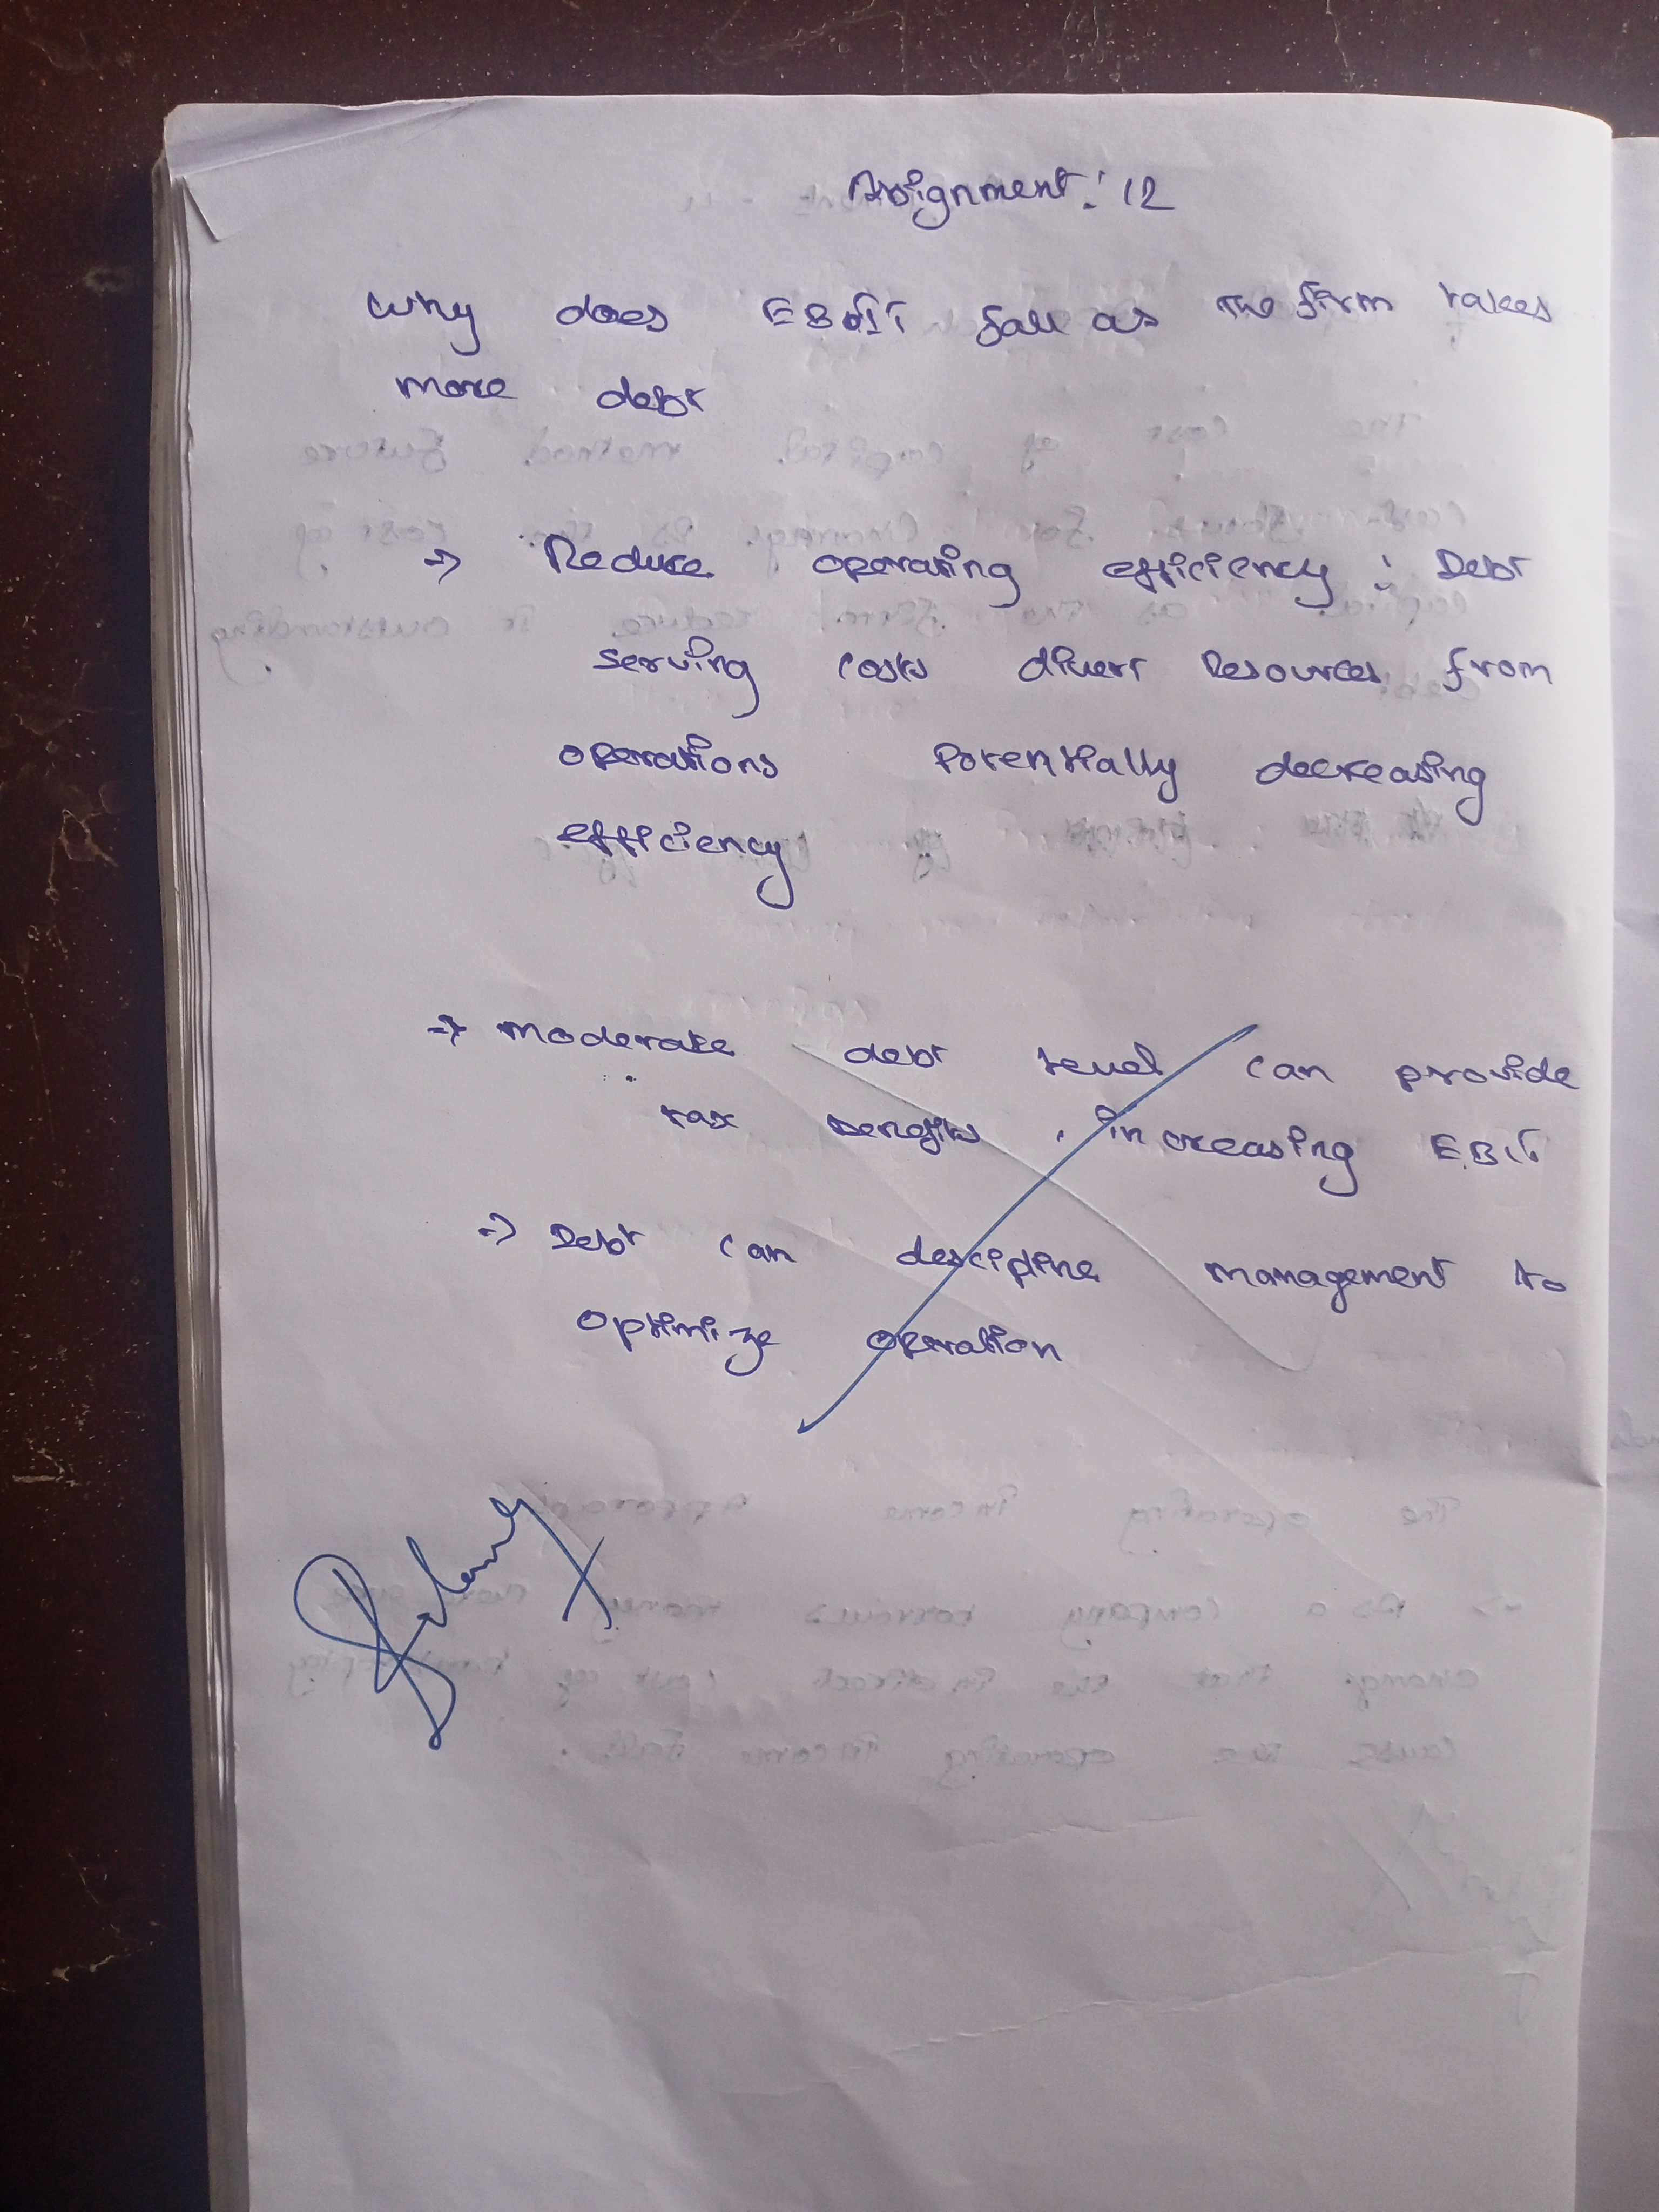 Assignment: 12
Why does EBIT fall as the firm takes
more debt
=> Reduce operating efficiency : Debt
serving costs divert Resources from
operations Potentially decreasing
efficiency
=> moderate debt level can provide
tax benefits, increasing EBIT
=> Debt can descipline management to
optimize operation